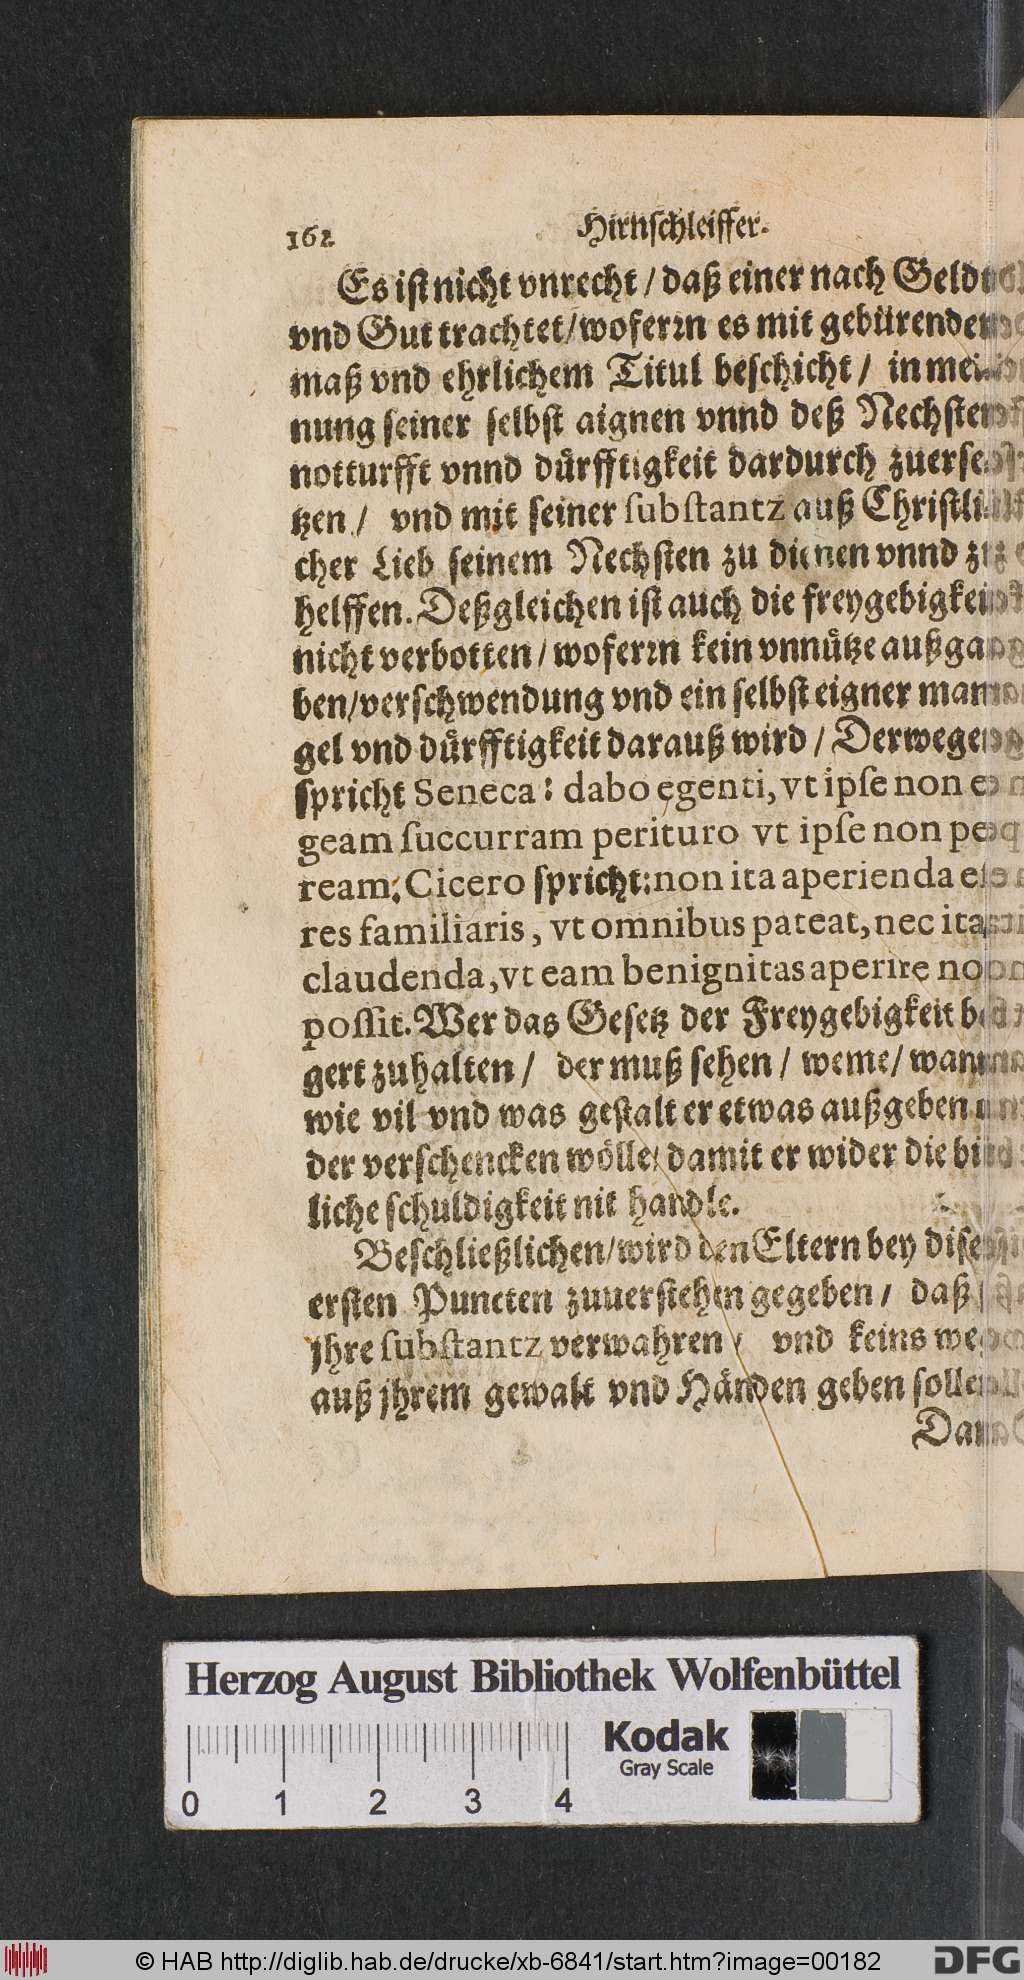 162
Hirnschleiffer.
Es ist nicht vnrecht / daß einer nach Geldt
vnd Gut trachtet / woferrn es mit gebürender
maß vnd ehrlichem Titul beschicht / in mei-
nung seiner selbst aignen vnnd deß Nechsten
notturfft vnnd dürfftigkeit dardurch zuerse-
tzen / vnd mit seiner substantz auß Christli-
cher Lieb seinem Nechsten zu dienen vnnd zu
helffen. Deßgleichen ist auch die freygebigkeit
nicht verbotten / woferrn kein vnnütze außga-
ben / verschwendung vnd ein selbst eigner man-
gel vnd dürfftigkeit darauß wird / Derwegen
spricht Seneca: dabo egenti, vt ipse non e-
geam succurram perituro vt ipse non pe-
ream: Cicero spricht: non ita aperienda est
res familiaris, vt omnibus pateat, nec ita
claudenda, vt eam benignitas aperire non
possit. Wer das Gesetz der Freygebigkeit be-
gert zuhalten / der muß sehen / weme / wann
wie vil vnd was gestalt er etwas außgeben
der verschencken wölle / damit er wider die
liche schuldigkeit nit handle.
Beschließlichen / wird den Eltern bey disem
ersten Puncten zuuerstehen gegeben / daß
jhre substantz verwahren / vnd keins wegs
auß jhrem gewalt vnd Händen geben sollen
Herzog August Bibliothek Wolfenbüttel
0 1 2 3 4
Kodak
Gray Scale
© HAB http://diglib.hab.de/drucke/xb-6841/start.htm?image=00182
DFG